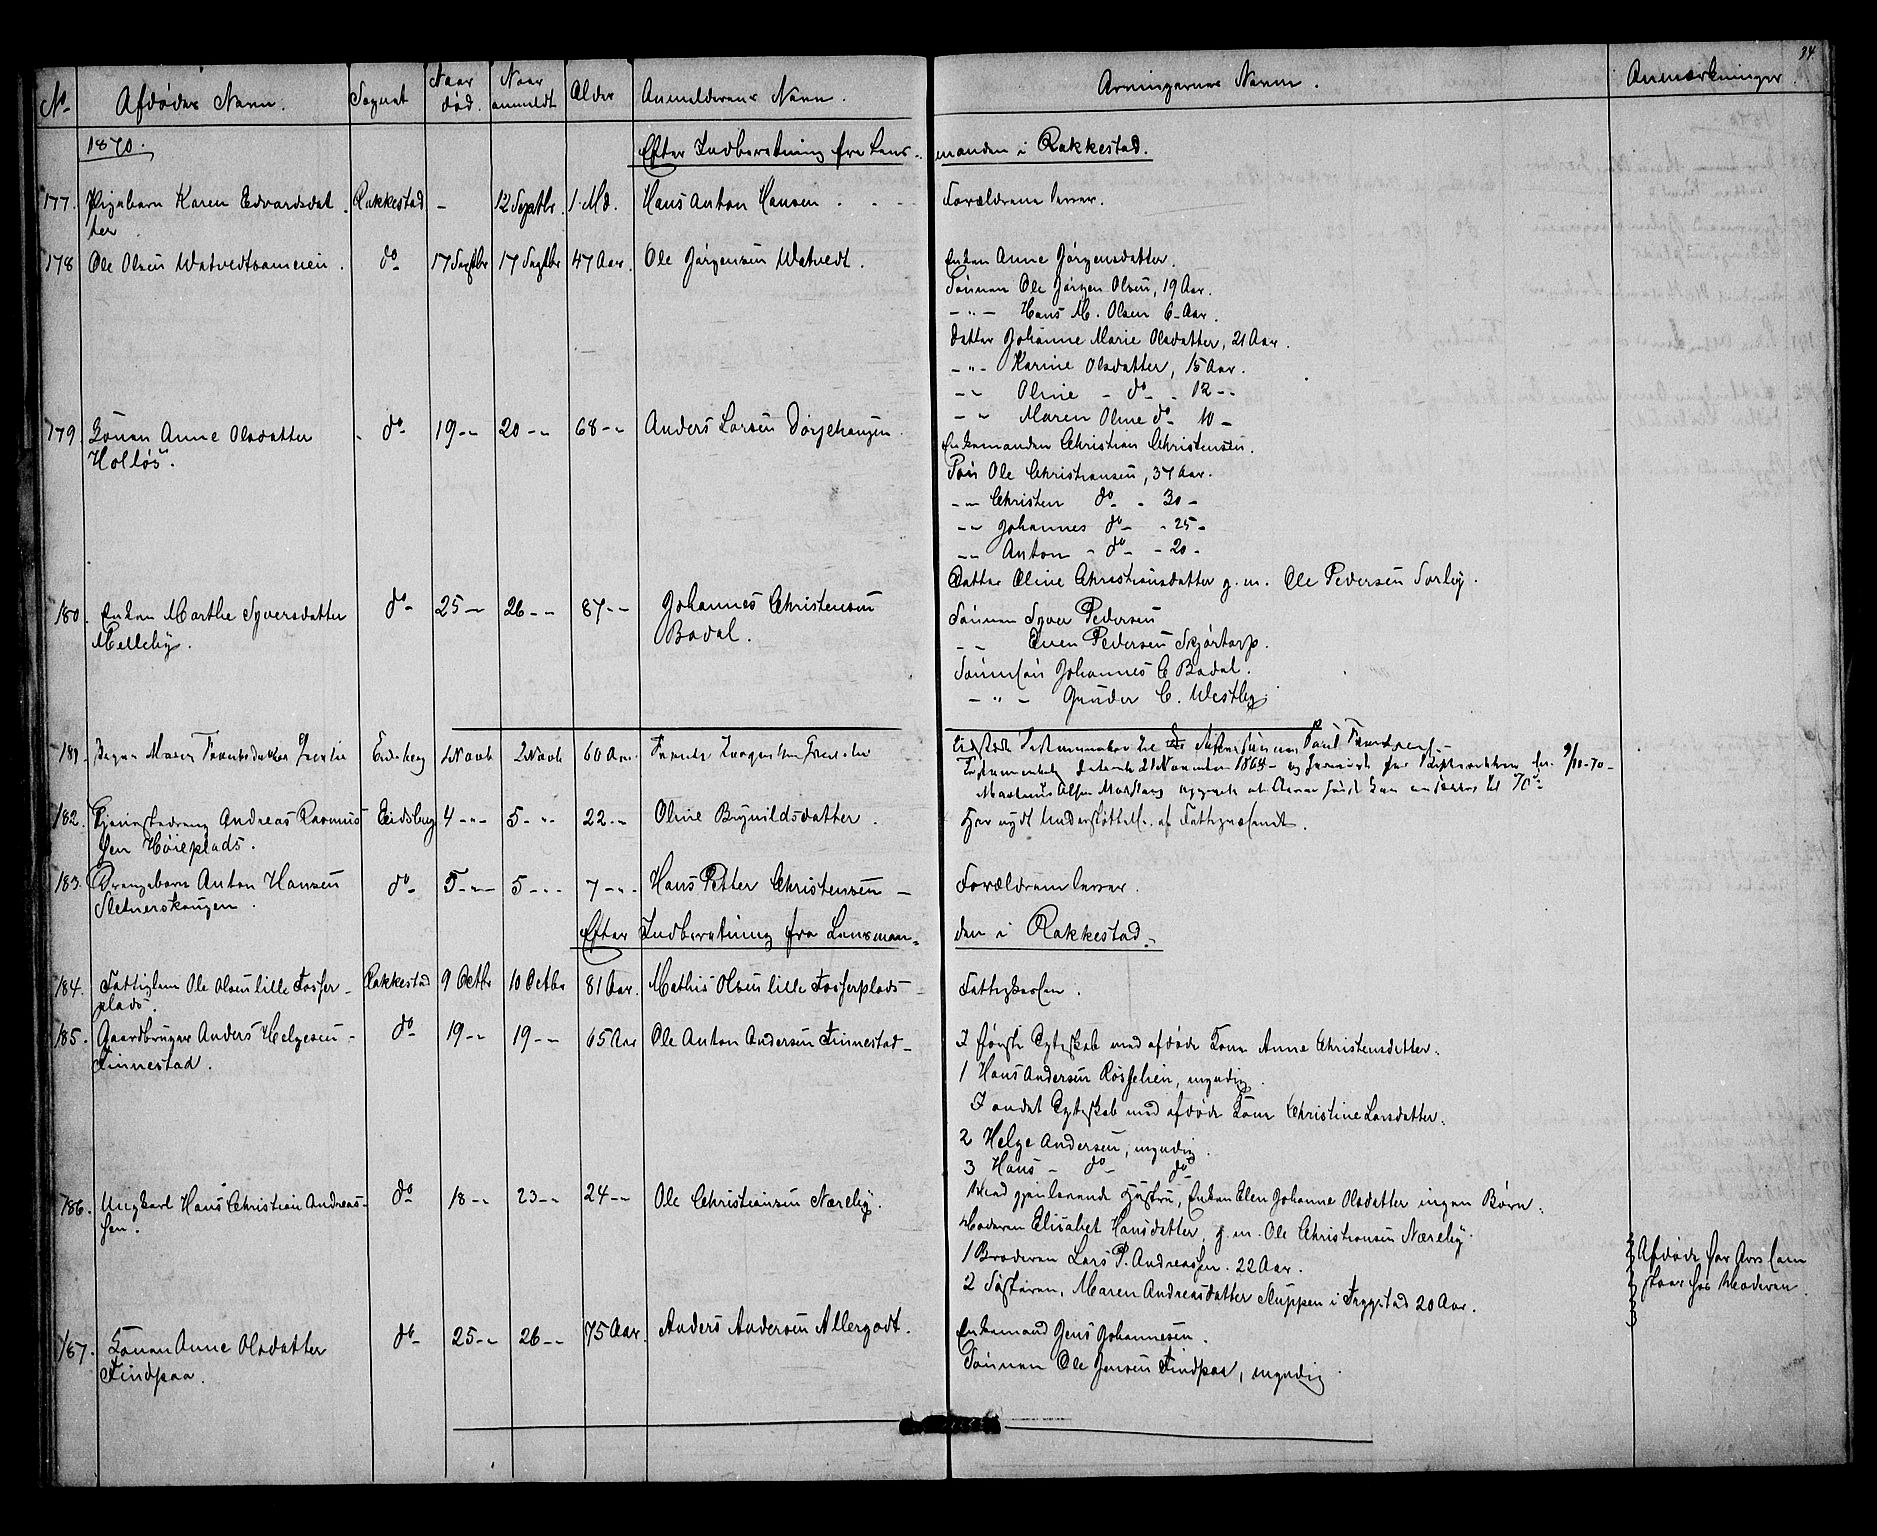 34.
No Afdødes Navn. Sognet Naar død. Naar anmeldt Alder Anmelderens Navn. Arvingernes Navne. Anmærkninger.
1870. Efter Indberetning fra Lens-manden i Rakkestad.
177. Pigebarn Karen Edvardsdat- Rakkestad - 12 Septbr. 1 Md. Hans Anton Hansen Forældrene lever.
ter
178 Ole Olsen Watvedtsameien. do 17 Septbr 17 Septbr 47 Aar. Ole Jørgensen Watvedt. Enken Anne Jørgensdatter.
Sønnen Ole Jørgen Olsen, 19 Aar.
-"- Hans M. Olsen 6 Aar.
Datter Johanne Marie Olsdatter, 21 Aar.
-"- Karine Olsdatter, 15 Aar.
-"- Oline - do - 12 -"-
-"- Maren Oline do 10 -
179 Konen Anne Olsdatter do 19 -"- 20 -"- 68 -"- Anders Larsen Dørjehaugen. Enkemanden Christian Christensen.
Holløs. Søn Ole Christiansen, 37 Aar.
-"- Christen do - 30 -
-"- Johannes do - 25 -
-"- Anton - do - 20 -
Datter Oline Christiansdatter g. m. Ole Pedersen Sørby.
180. Enken Marthe Syversdatter do 25 - 26 -"- 87 -"- Johannes Christensen Sønnen Syver Pedersen
Melleby. Bødal. -"- Even Pedersen Skjørtorp.
Sønnesøn Johannes C Bødal.
-"- Gunder C. Westby.
181. Maren Eidsberg 2 Novb 2 Novb 60 Aar
Testamente 21 November 1864 9/10-70-
182. Tjenestedreng Andreas Rasmus- Eidsberg 4 -"- 5 -"- 22 -"- Oline Brynildsdatter. Har nydt Understøttelse af Fattigvæsenet.
sen Høieplads.
183. Drengebarn Anton Hansen do 5 -"- 5 -"- 7 -"- Hans Petter Christensen - Forældrene lever.
Sletnerskougen.
Efter Indberetning fra Lensman-den i Rakkestad.
184. Fattiglem Ole Olsen lille Fosser- Rakkestad 9 Octbr 10 Octbr 81 Aar. Mathis Olsen lille Fosserplads Fattigkassen.
plads.
185. Gaardbruger Anders Helgesen - do 19 -"- 19 -"- 65 Aar Ole Anton Andersen Finnestad - I første Egteskab med afdøde Kone Anne Christensdatter.
Finnestad. 1 Hans Andersen Røsselien, myndig.
I andet Egteskab med afdøde Kone Christine Larsdatter.
2 Helge Andersen, myndig.
3 Hans - do do
Med gjenlevende Hustru, Enken Elen Johanne Olsdatter ingen Børn.
186. Ungkarl Hans Christian Andreas- do 18 -"- 23 -"- 24 -"- Ole Christiansen Næreby. Moderen Elisabet Hansdatter, g. m. Ole Christiansen Næreby.
sen. 1 Broderen Lars P. Andreassen. 22 Aar. Afdøde har Arv som
2 Søsteren, Maren Andreasdatter Skuppen i Trygstad 20 Aar. staar hos Moderen.
187. Konen Anne Olsdatter do 25 -"- 26 -"- 75 Aar. Anders Andersen Allergodt. Enkemand Jens Johannesen.
Findpaa. Sønnen Ole Jensen Findpaa, myndig.